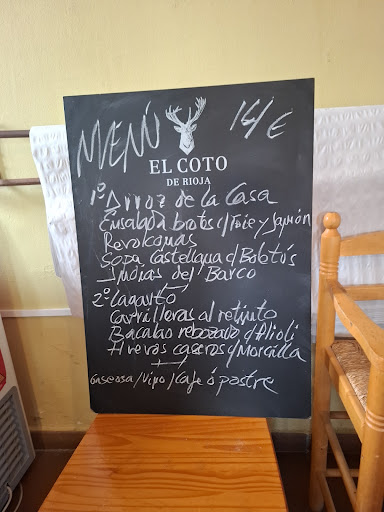 MENÚ 14/€
EL COTO
DE RIOJA
1º Arroz de la Casa
Ensalada brotes c/ Foie y Jamón
Revolconas
Sopa Castellana c/
Judias del Barco
2º Lagarto
Carrilleras al retinto
Bacalao rebozado c/ Alioli
Huevos caseros c/ Morcilla
Gaseosa/Vino/Cafe ó postre